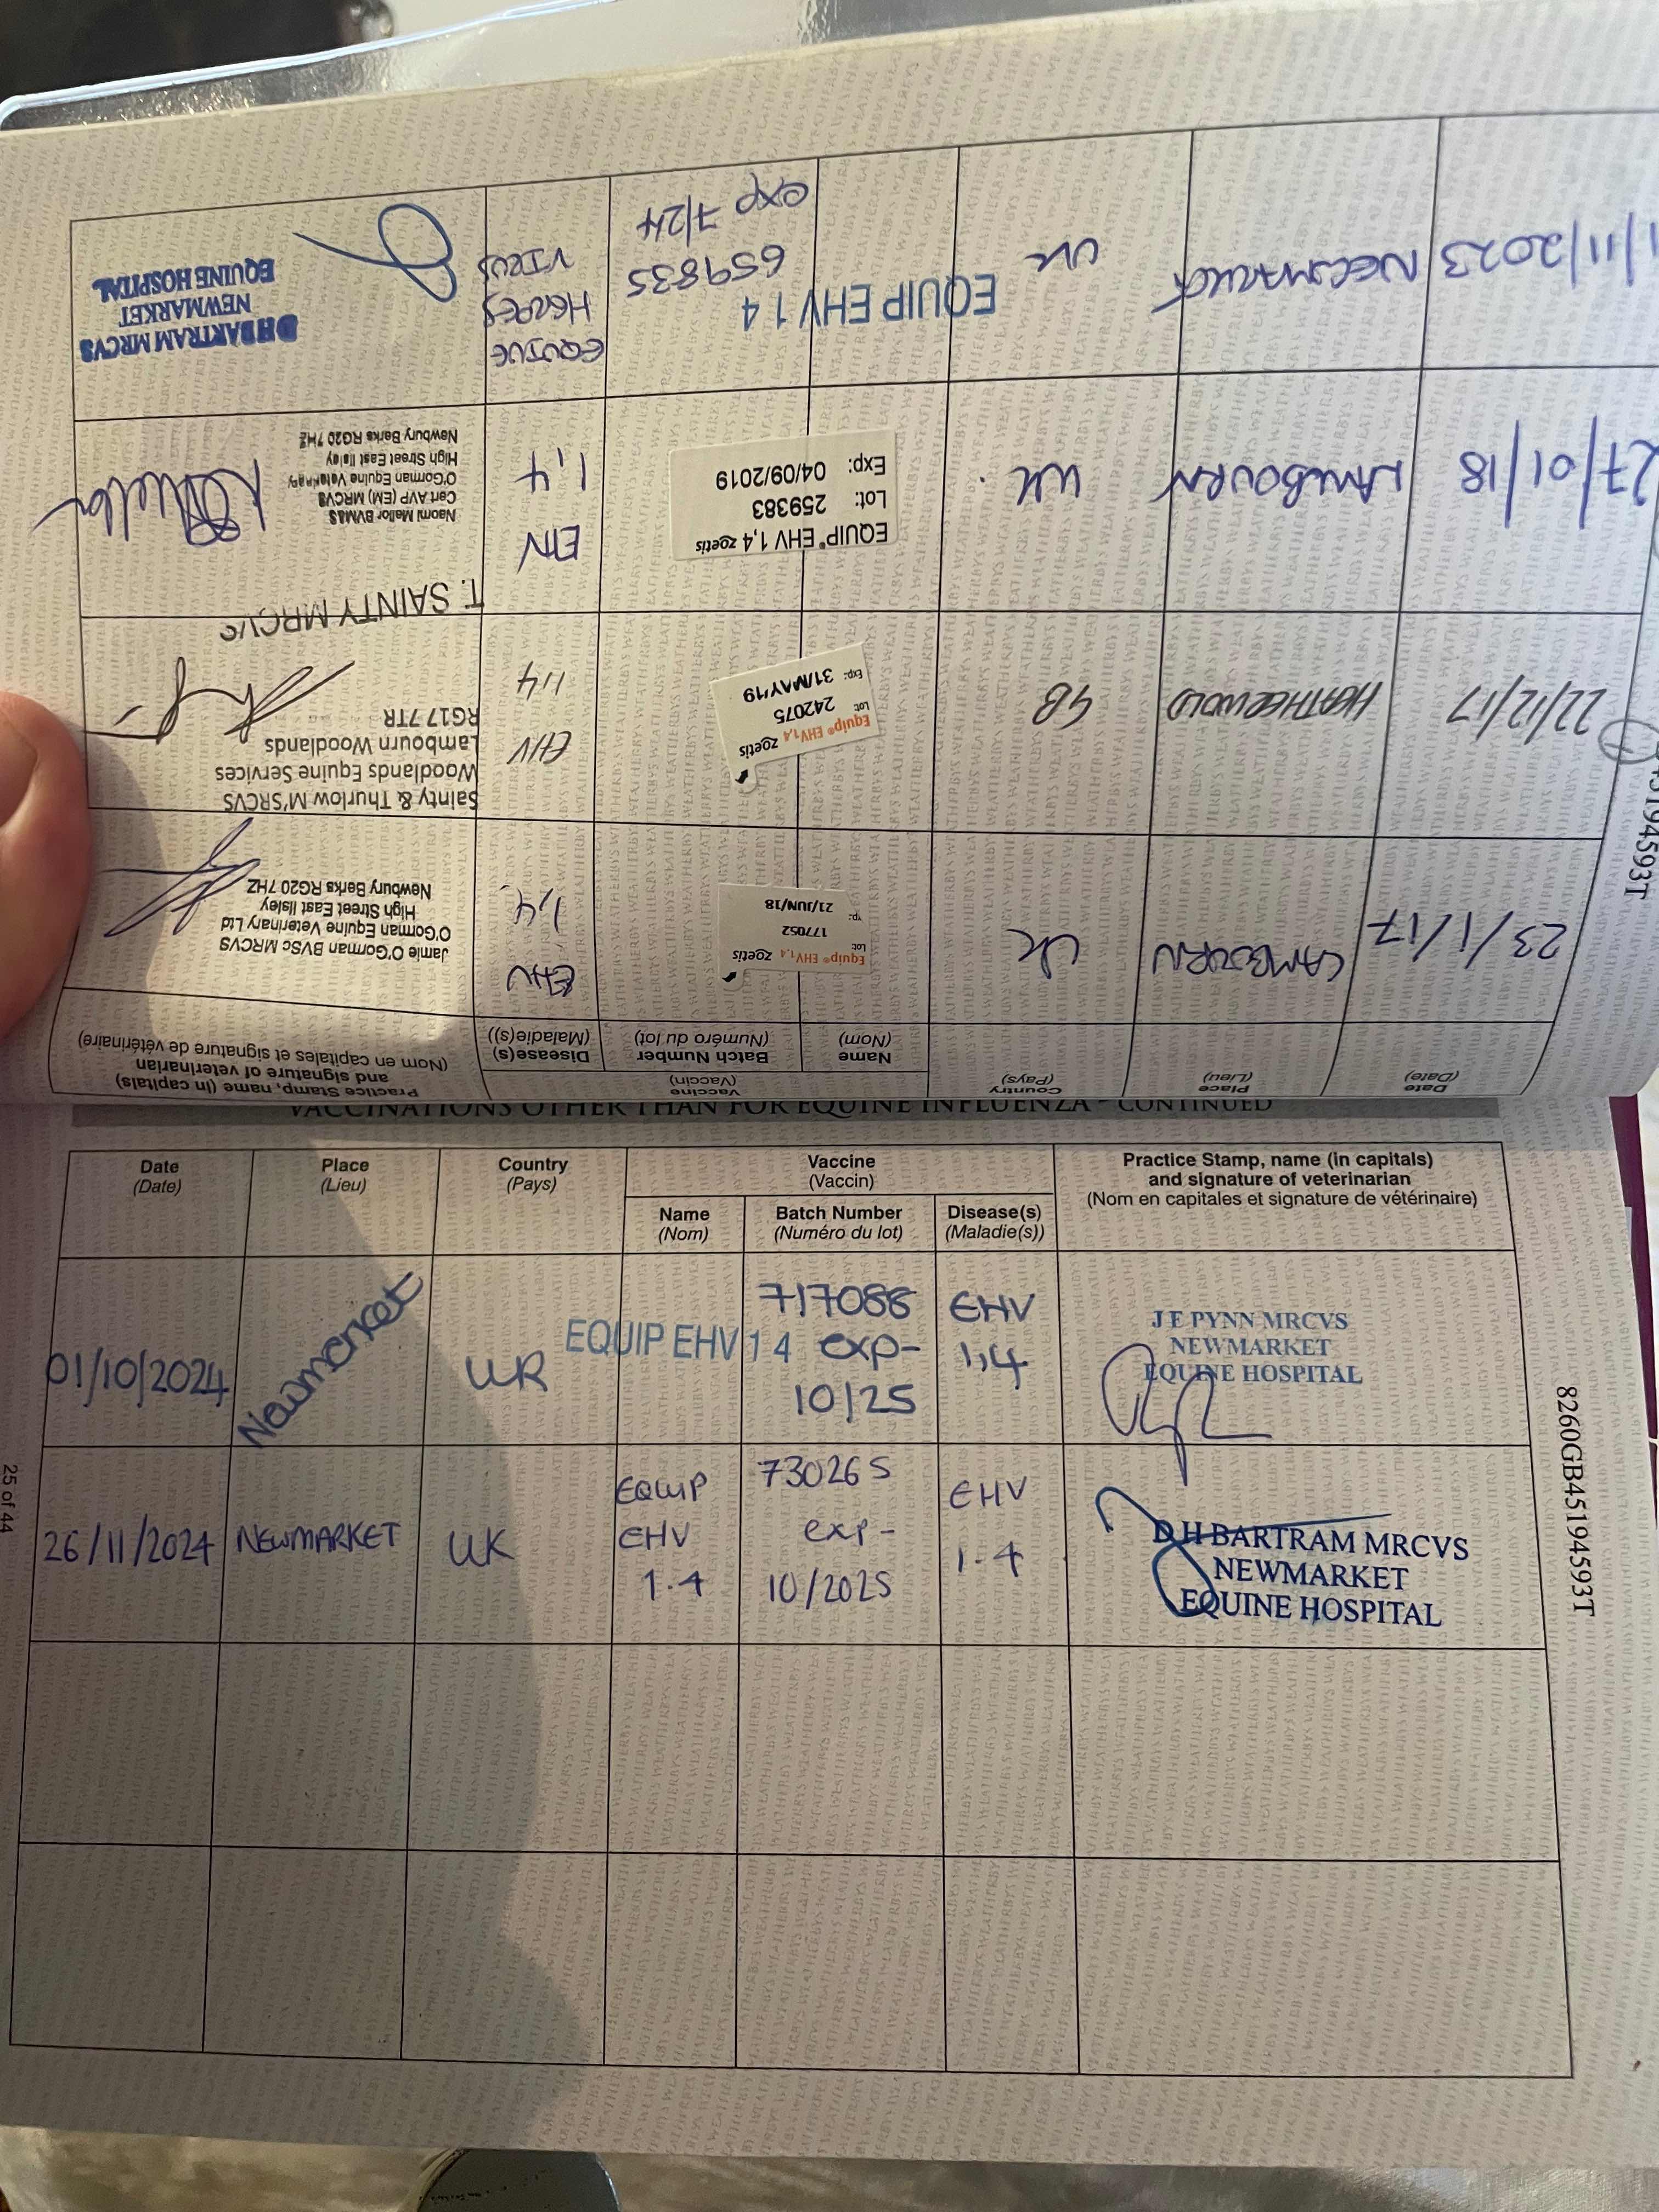 Date
(Date)
Place
(Lieu)
Country
(Pays)
Vaccine
(Vaccin)
Name
(Nom)
Batch Number
(Numéro du lot)
Disease(s)
(Maladie(s))
Practice Stamp, name (in capitals)
and signature of veterinarian
(Nom en capitales et signature de vétérinaire)
23/1/17
LAMBOURN
UK
Equip® EHV 1,4 zoetis
Lot: 177052
21/JUN/18
EHV
1,4
Jamie O'Gorman BVSc MRCVS
O'Gorman Equine Veterinary Ltd
High Street East Ilsley
Newbury Berks RG20 7HZ
22/12/17
HEATHERWOLD
GB
Equip® EHV 1,4 zoetis
Lot: 242075
Exp: 31/MAY/19
EHV
1,4
Sainty & Thurlow M'SRCVS
Woodlands Equine Services
Lambourn Woodlands
RG17 7TR
T. SAINTY MRCVS
27/01/18
LAMBOURN
UK.
EQUIP® EHV 1,4 zoetis
Lot: 259383
Exp: 04/09/2019
1,4
Naomi Mellor BVM&S
Cert AVP (EM) MRCVS
O'Gorman Equine Veterinary
High Street East Ilsley
Newbury Berks RG20 7HZ
1/11/2023
NEWMARKET
UK
EQUIP EHV 1 4
659835
exp 7/24
EQUINE
HERPES
VIRUS
DH BARTRAM MRCVS
NEWMARKET
EQUINE HOSPITAL
45194593T
VACCINATIONS OTHER THAN FOR EQUINE INFLUENZA - CONTINUED
Date
(Date)
Place
(Lieu)
Country
(Pays)
Vaccine
(Vaccin)
Name
(Nom)
Batch Number
(Numéro du lot)
Disease(s)
(Maladie(s))
Practice Stamp, name (in capitals)
and signature of veterinarian
(Nom en capitales et signature de vétérinaire)
01/10/2024
Newmarket
UK
EQUIP EHV 1 4
717088
exp-
10/25
EHV
1,4
J E PYNN MRCVS
NEWMARKET
EQUINE HOSPITAL
26/11/2024
NEWMARKET
UK
EQUIP
EHV
1.4
730265
exp-
10/2025
EHV
1.4
D H BARTRAM MRCVS
NEWMARKET
EQUINE HOSPITAL
25 of 44
8260GB451945593T